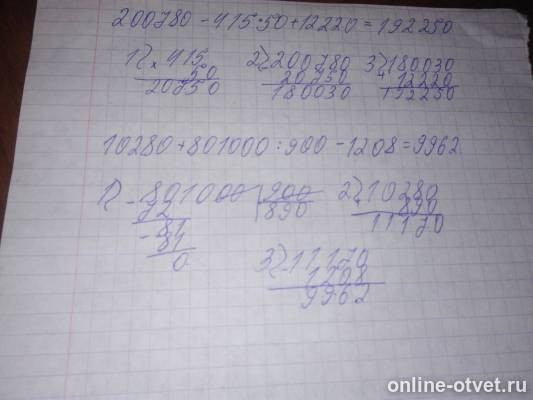 200780 - 415·50 + 12220 = 192250
1) × 415
50
20750
2) - 200780
20750
180030
3) + 180030
12220
192250
10280 + 801000 : 900 - 1208 = 9962
1) - 801000 | 900
72 | 890
- 81
81
0
2) + 10280
890
11170
3) - 11170
1208
9962
online-otvet.ru